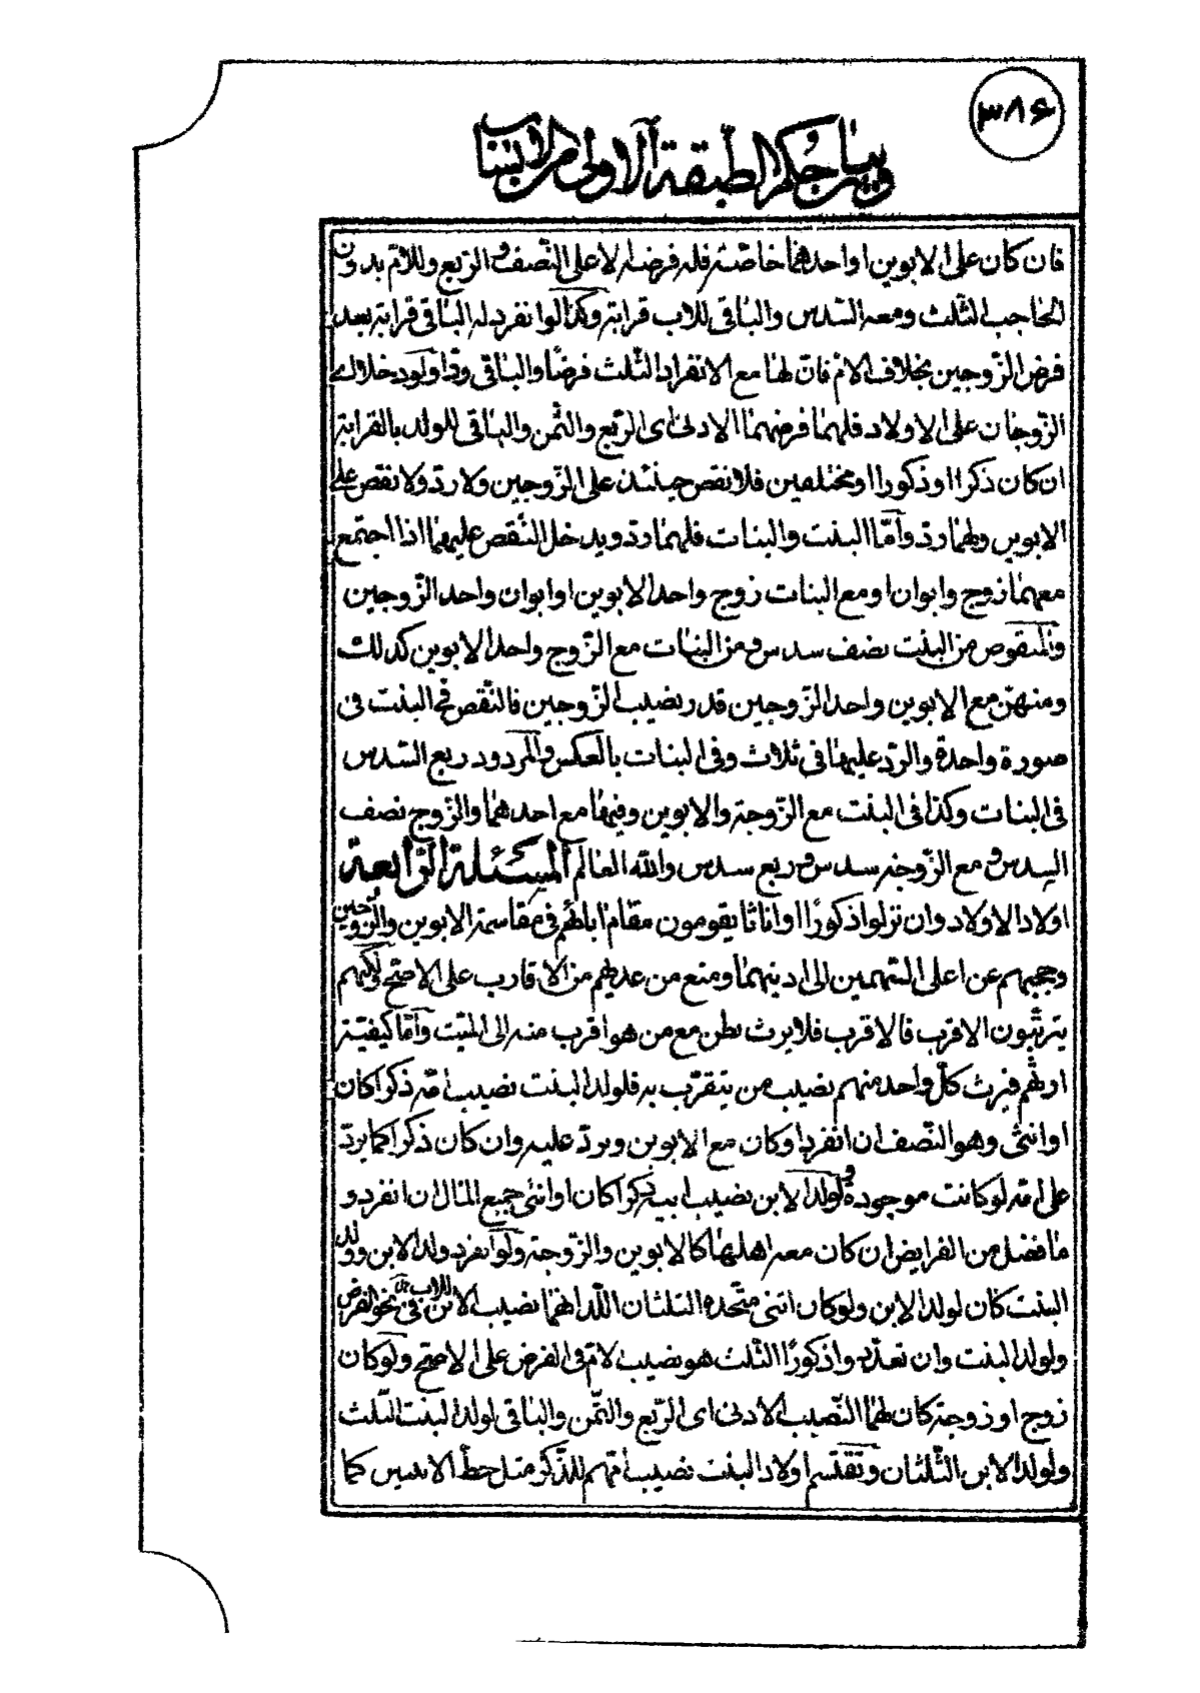 ٣٨۶
وبيان حكم الطبقة الاولى من الانساب
فان كان على الابوين او احدهما خاصّة فله فرضه الاعلى النّصف و الرّبع وللامّ بدون
الحاجب الثّلث ومعه السّدس والباقى للاب قرابة وكذا لو انفرد له الباقى قرابة بعد
فرض الزّوجين بخلاف الامّ فانّ لها مع الانفراد الثّلث فرضًا والباقى ردّا ولو دخلا اى
الزّوجان على الاولاد فلهما فرضهما الادنى اى الرّبع والثّمن والباقى للولد بالقرابة
ان كان ذكرا او ذكورا او مختلفين فلا نقص حينئذ على الزّوجين ولا ردّ ولا نقص على
الابوين ولهما ردّ وامّا البنت والبنات فلهما ردّ ويدخل النّقص عليهما اذا اجتمع
معهما زوج وابوان او مع البنات زوج واحد الابوين او ابوان واحد الزّوجين
والمنقوص من البنت نصف سدس ومن البنات مع الزّوج واحد الابوين كذلك
ومنهنّ مع الابوين واحد الزّوجين قدر نصيب الزّوجين فالنّقص فى البنت فى
صورة واحدة والرّد عليها فى ثلاث وفى البنات بالعكس والمردود ربع السّدس
فى البنات وكذا فى البنت مع الزّوجة والابوين وفيها مع احدهما والزّوج نصف
السدس و مع الزّوجة سدس و ربع سدس والله العالم المسئلة الرّابعة
اولاد الاولاد وان نزلوا ذكورًا او اناثا يقومون مقام ابائهم فى مقاسمة الابوين والزّوجين
وحجبهم عن اعلى السّهمين الى ادنيهما ومنع من عداهم من الاقارب على الاصحّ ولكنّهم
يترتّبون الاقرب فالاقرب فلا يرث بطن مع من هو اقرب منه الى الميّت وامّا كيفيّة
ارثهم فيرث كلّ واحد منهم نصيب من يتقرّب به فلولد البنت نصيب امّه ذكرا كان
او انثى وهو النّصف ان انفرد او كان مع الابوين ويردّ عليه وان كان ذكرا كما يردّ
على امّه لو كانت موجودة و لولد الابن نصيب ابيه ذكرا كان او انثى جميع المال ان انفرد و
ما فضل من الفرايض ان كان معه اهلها كالابوين والزّوجة ولو انفرد ولد الابن وولد
البنت كان لولد الابن ولو كان انثى متّحدة الثلثان اللّذان هما نصيب الابن فى نحو الفرض
ولولد البنت وان تعدّدوا ذكورًا الثّلث هو نصيب الامّ فى الفرض على الاصحّ ولو كان
زوج او زوجة كان لهما النّصيب الادنى اى الرّبع والثّمن والباقى لولد البنت الثّلث
ولولد الابن الثّلثان وتقتسم اولاد البنت نصيب امّهم للذّكر مثل حظّ الانثيين كما